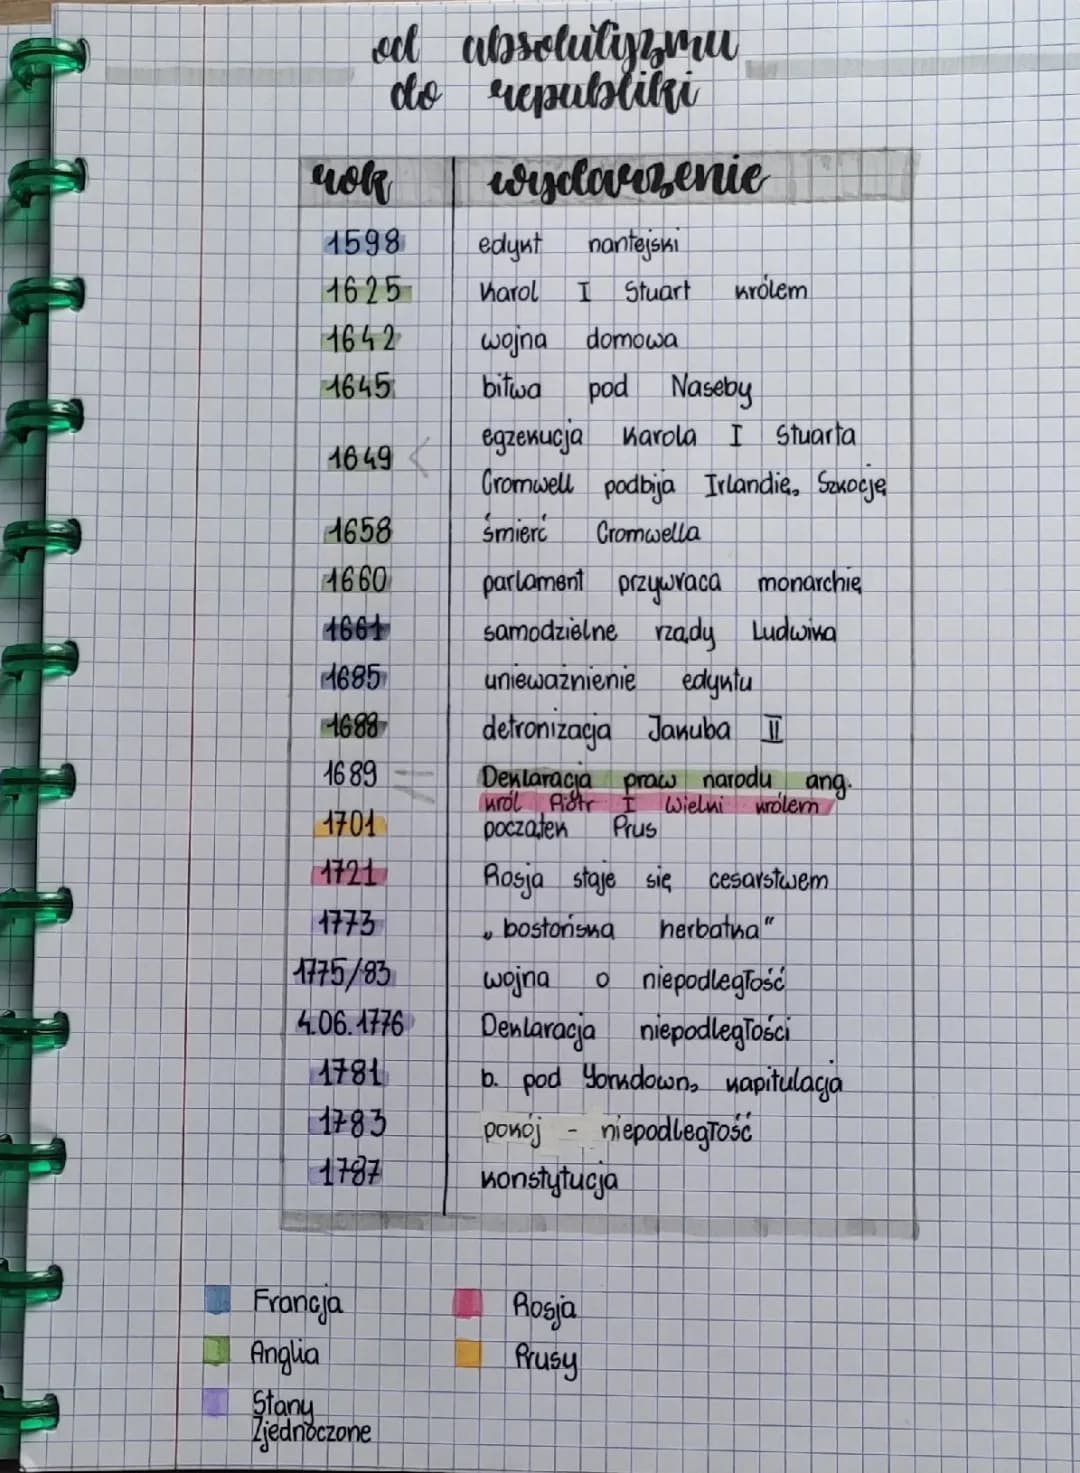 od absolutyzmu
do republiki
rok wydarzenie
1598 edykt nantejski
1625 Karol I Stuart królem
1642 wojna domowa
1645 bitwa pod Naseby
1649 egzekucja Karola I Stuarta
Cromwell podbija Irlandię, Szkocję
1658 śmierć Cromwella
1660 parlament przywraca monarchię
1661 samodzielne rządy Ludwika
1685 unieważnienie edyktu
1688 detronizacja Jakuba II
1689 Deklaracja praw narodu ang.
król Piotr I Wielki królem
1701 początek Prus
1721 Rosja staje się cesarstwem
1773 „bostońska herbatka"
1775/83 wojna o niepodległość
4.06.1776 Deklaracja niepodległości
1781 b. pod Yorkdown, kapitulacja
1783 pokój - niepodległość
1787 konstytucja
Francja Rosja
Anglia Prusy
Stany
Zjednoczone